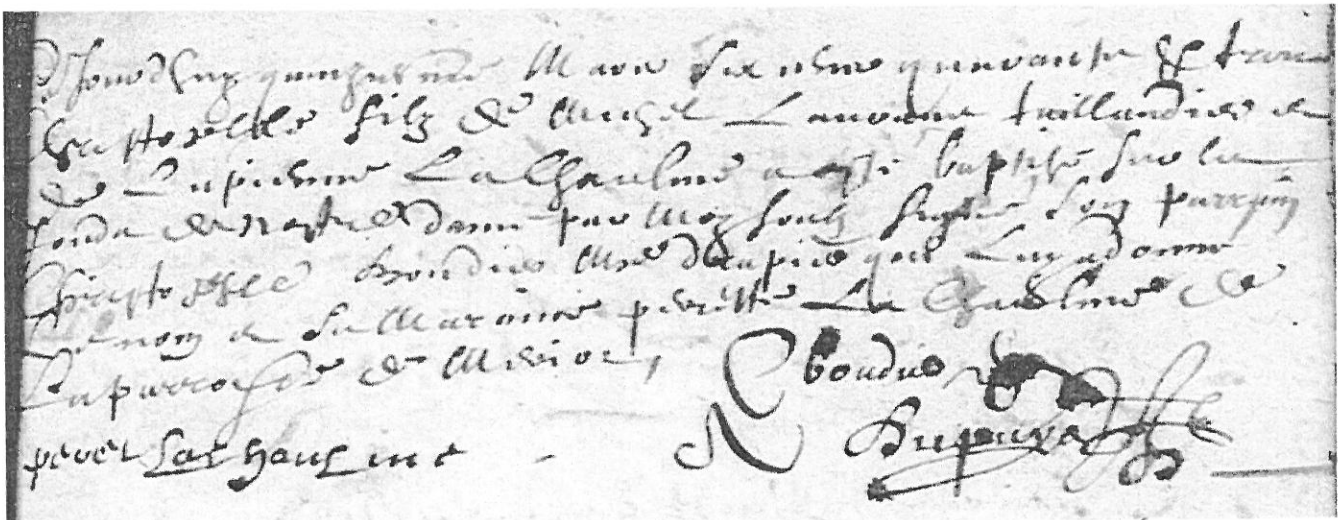 Jourdhuy quinziesme Mars six cens quarante & trois
Christofle filz de Michel Lavoine taillandier et
de Lapienne Lachaulme a esté baptisé sur les
fonds de nostre dame par moy soubz signe son parrain
Christofle Boudier Mre drapier qui luy a donne
le nom et sa Maraine perette La Chaulme de
la parroisse de
C boudier
peret Lachaulme Dupuys